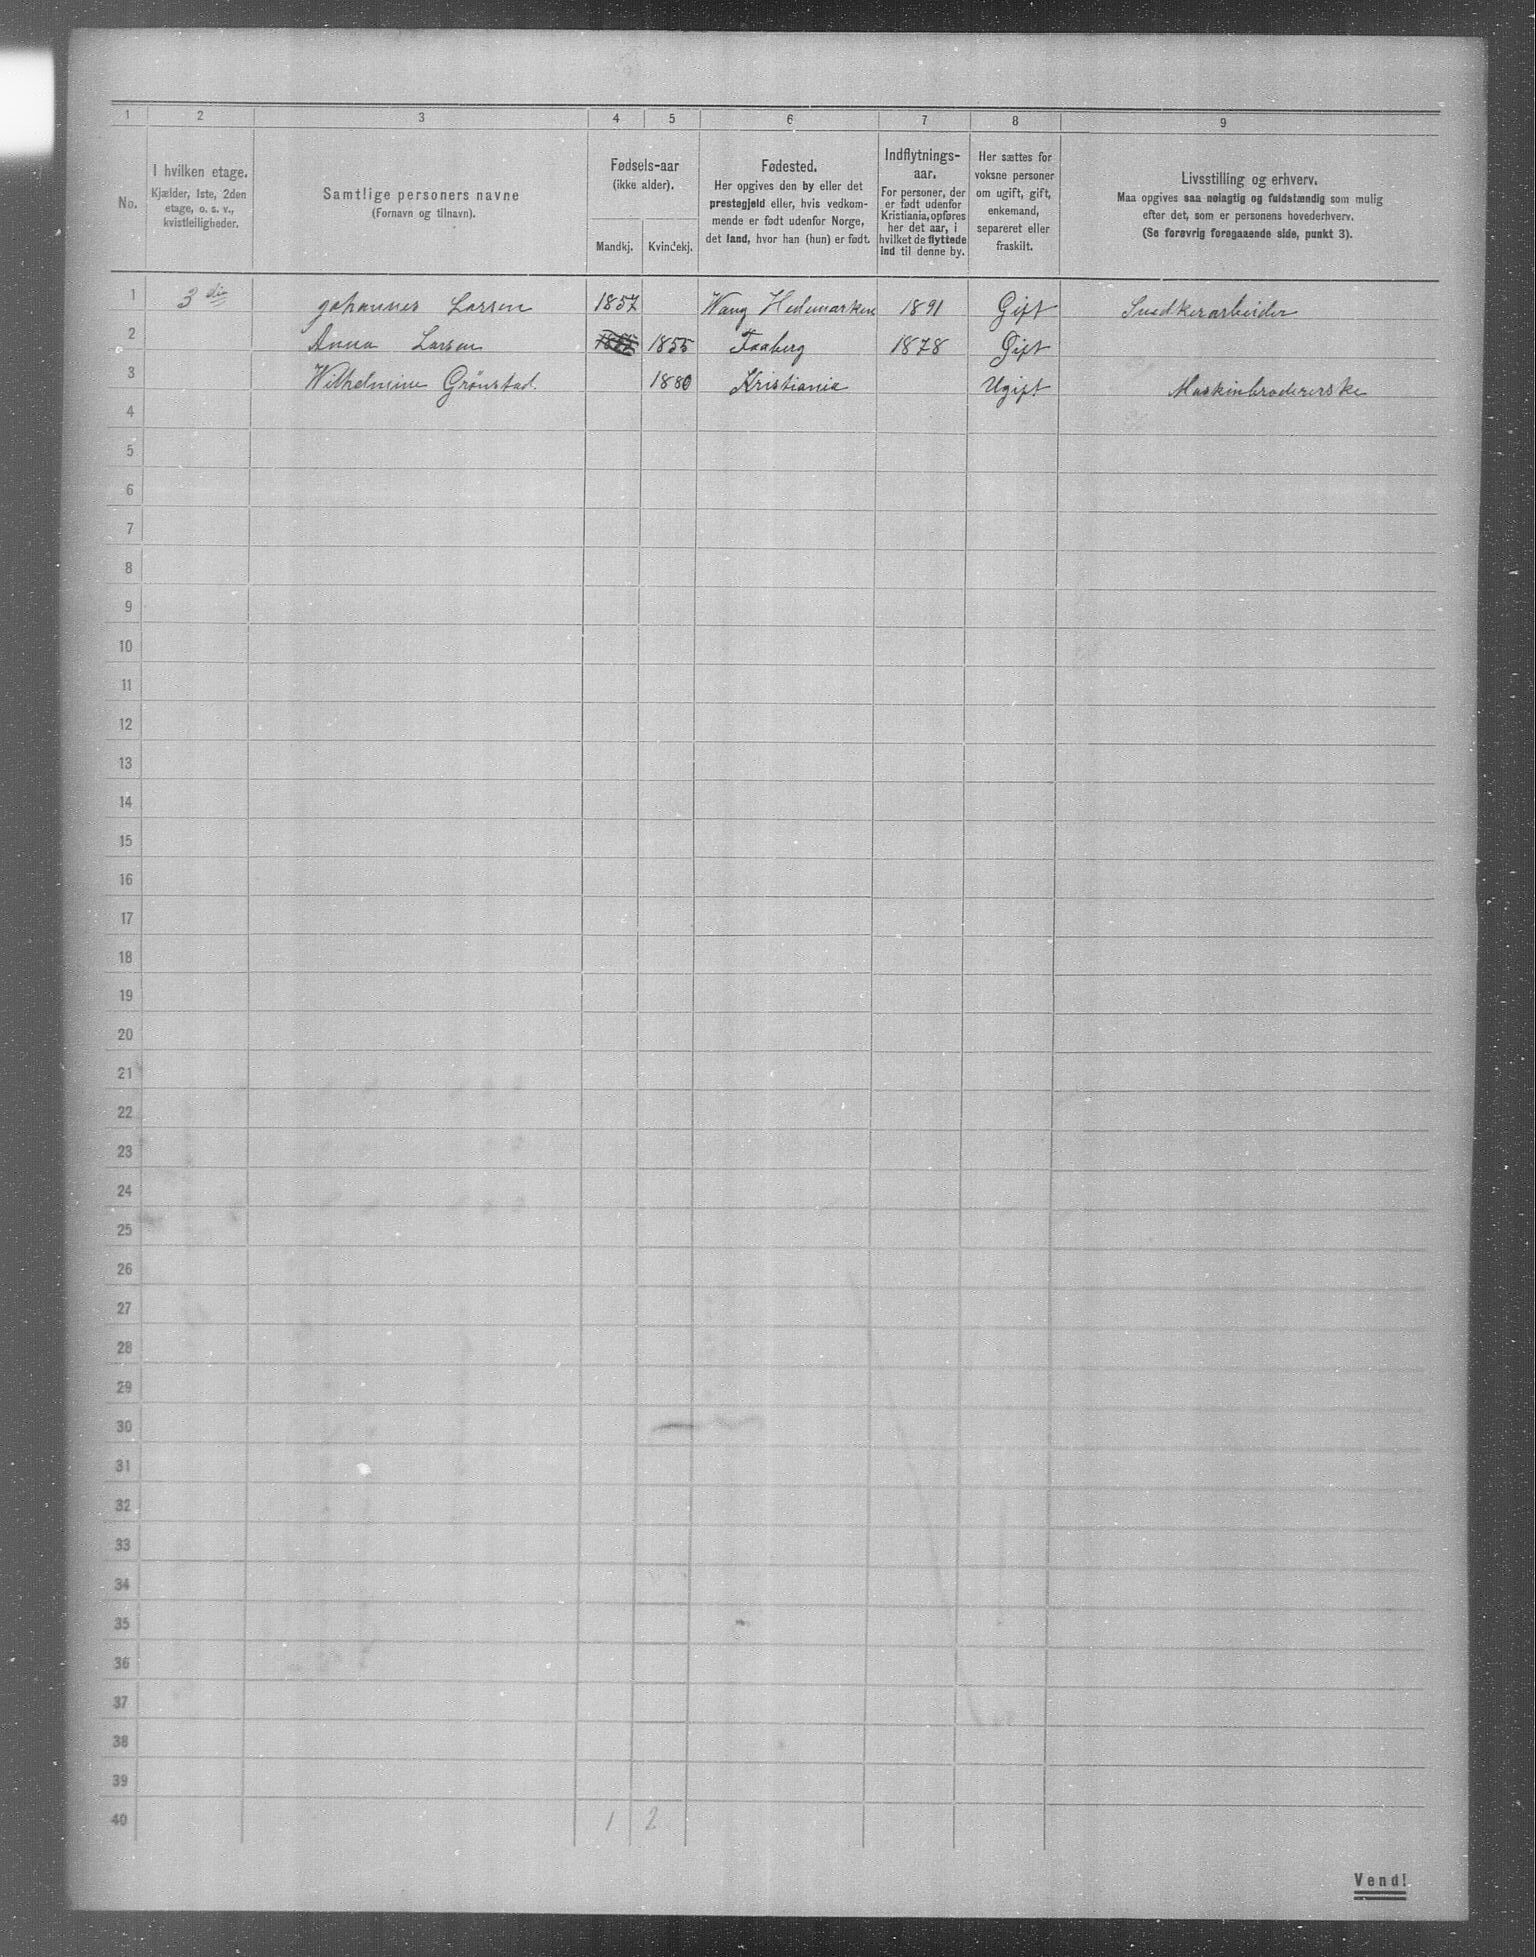 1 2 3 4 5 6 7 8 9
No.
I hvilken etage.
Kjælder, 1ste, 2den
etage, o. s. v.,
kvistleiligheder.
Samtlige personers navne
(Fornavn og tilnavn).
Fødsels-aar
(ikke alder).
Mandkj. Kvindekj.
Fødested.
Her opgives den by eller det
prestegjeld eller, hvis vedkom-
mende er født udenfor Norge,
det land, hvor han (hun) er født.
Indflytnings-
aar.
For personer, der
er født udenfor
Kristiania, opføres
her det aar, i
hvilket de flyttede
ind til denne by.
Her sættes for
voksne personer
om ugift, gift,
enkemand,
separeret eller
fraskilt.
Livsstilling og erhverv.
Maa opgives saa nøiagtig og fuldstændig som mulig
efter det, som er personens hovederhverv.
(Se forøvrig foregaaende side, punkt 3).
1 3die Johannes Larsen 1857 Wang Hedemarken 1891 Gift Snedkerarbeider
2 Anna Larsen 1855 Faaberg 1878 Gift
3 Wilhelmine Grønstad 1880 Kristiania Ugift Maskinbrodererske
4
5
6
7
8
9
10
11
12
13
14
15
16
17
18
19
20
21
22
23
24
25
26
27
28
29
30
31
32
33
34
35
36
37
38
39
40 1 2
Vend!